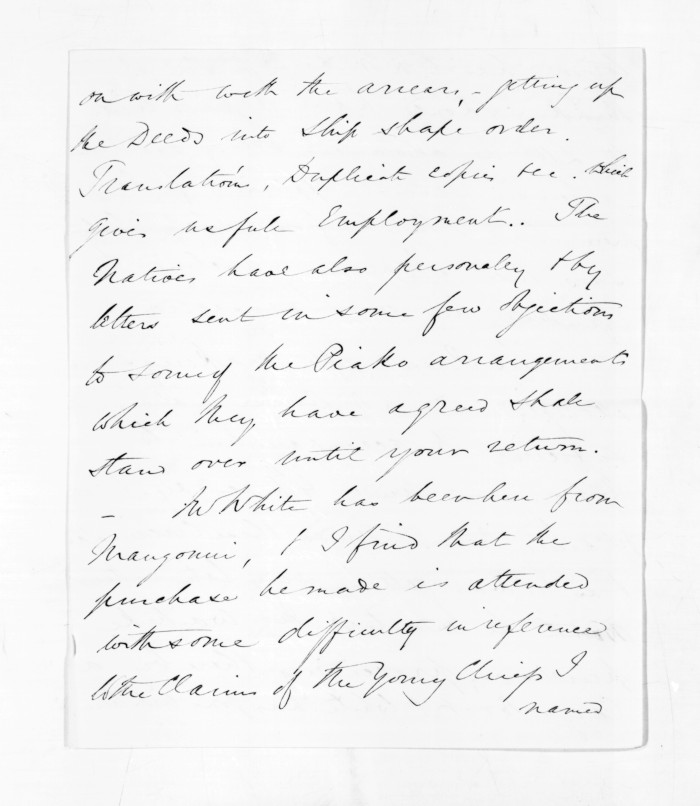 on with with the arrears, - getting up
the Deeds into Ship shape order.
Translations, Duplicate copies &c. which
gives useful Employment.. The
Natives have also personaley & by
letters sent in some few objections
to some of the Piako arrangements
which they have agreed shall
stand over until your return.
- Mr White has been here from
Mangonui, & I find that the
purchase he made is attended
with some difficulty in reference
to the Claims of the Young Chief I
named